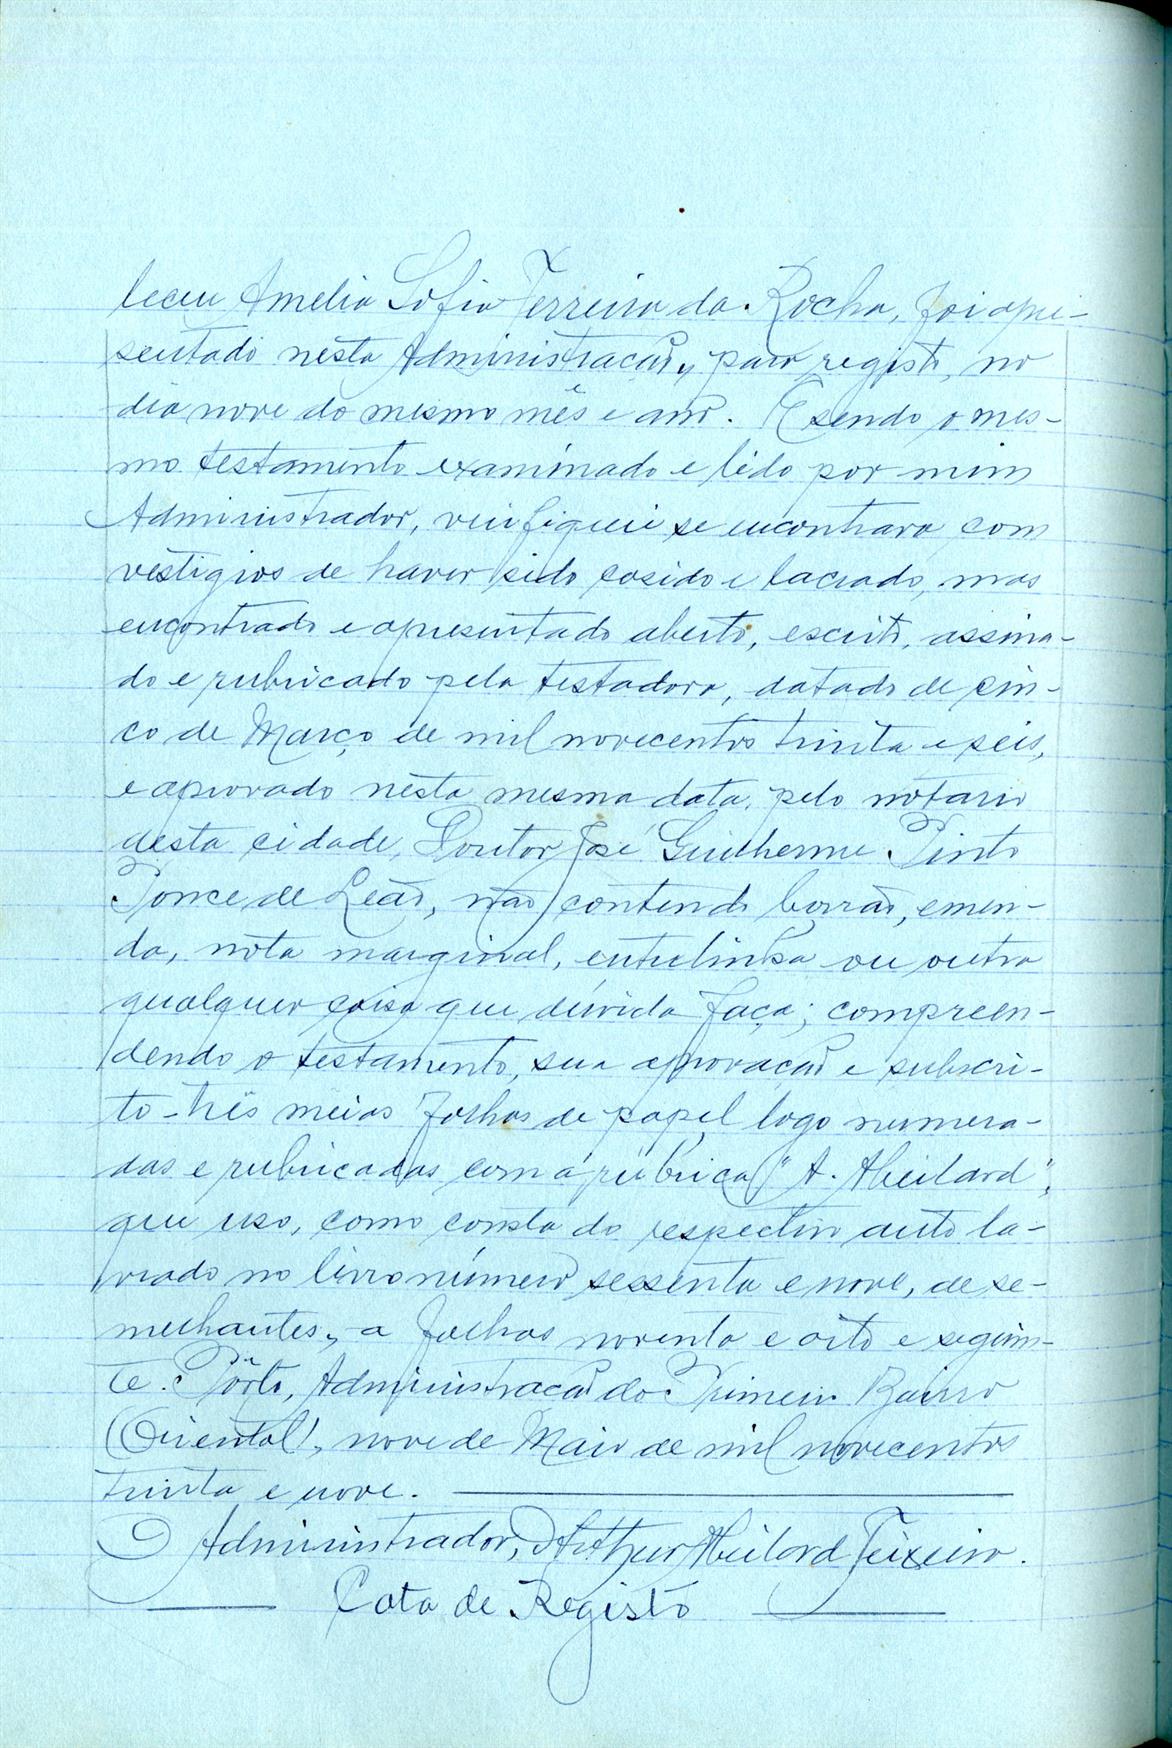 leceu Amelia Sofia Ferreira da Rocha, foi apre-
sentado nesta Administração, para registo, no
dia nove do mesmo mês e ano. E sendo o mes-
mo testamento examinado e lido por mim
Administrador, verifiquei se encontrava com
vestigios de haver sido cosido e lacrado, mas
encontrado e apresentado aberto, escrito, assina-
do e rubricado pela testadora, datado de cin-
co de Março de mil novecentos trinta e seis,
e aprovado nesta mesma data, pelo notario
desta cidade, Doutor José Guilherme Pinto
Ponce de Leão, não contendo borrão, emen-
da, nota marginal, entrelinha ou outra
qualquer coisa que dúvida faça; compreen-
dendo o testamento, sua aprovação e subscri-
to-três meias folhas de papel logo numera-
das e rubricadas com a rúbrica "A. Abeilard",
que uso, como consta do respectivo auto la-
vrado no livro número sessenta e nove, de se-
melhantes, a folhas noventa e oito e seguin-
te. Pôrto, Administração do Primeiro Bairro
(Oriental), nove de Maio de mil novecentos
trinta e nove.
O Administrador, Arthur Abeilard Teixeira.
Cota de Registo